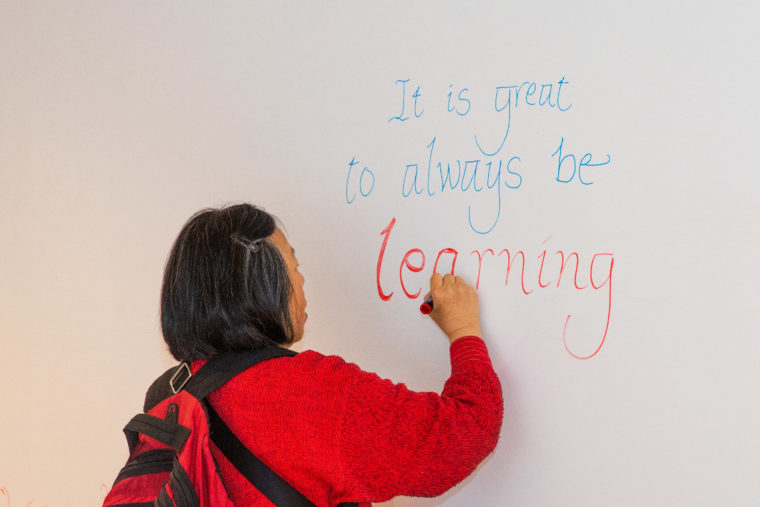 It is great
to always be
learning